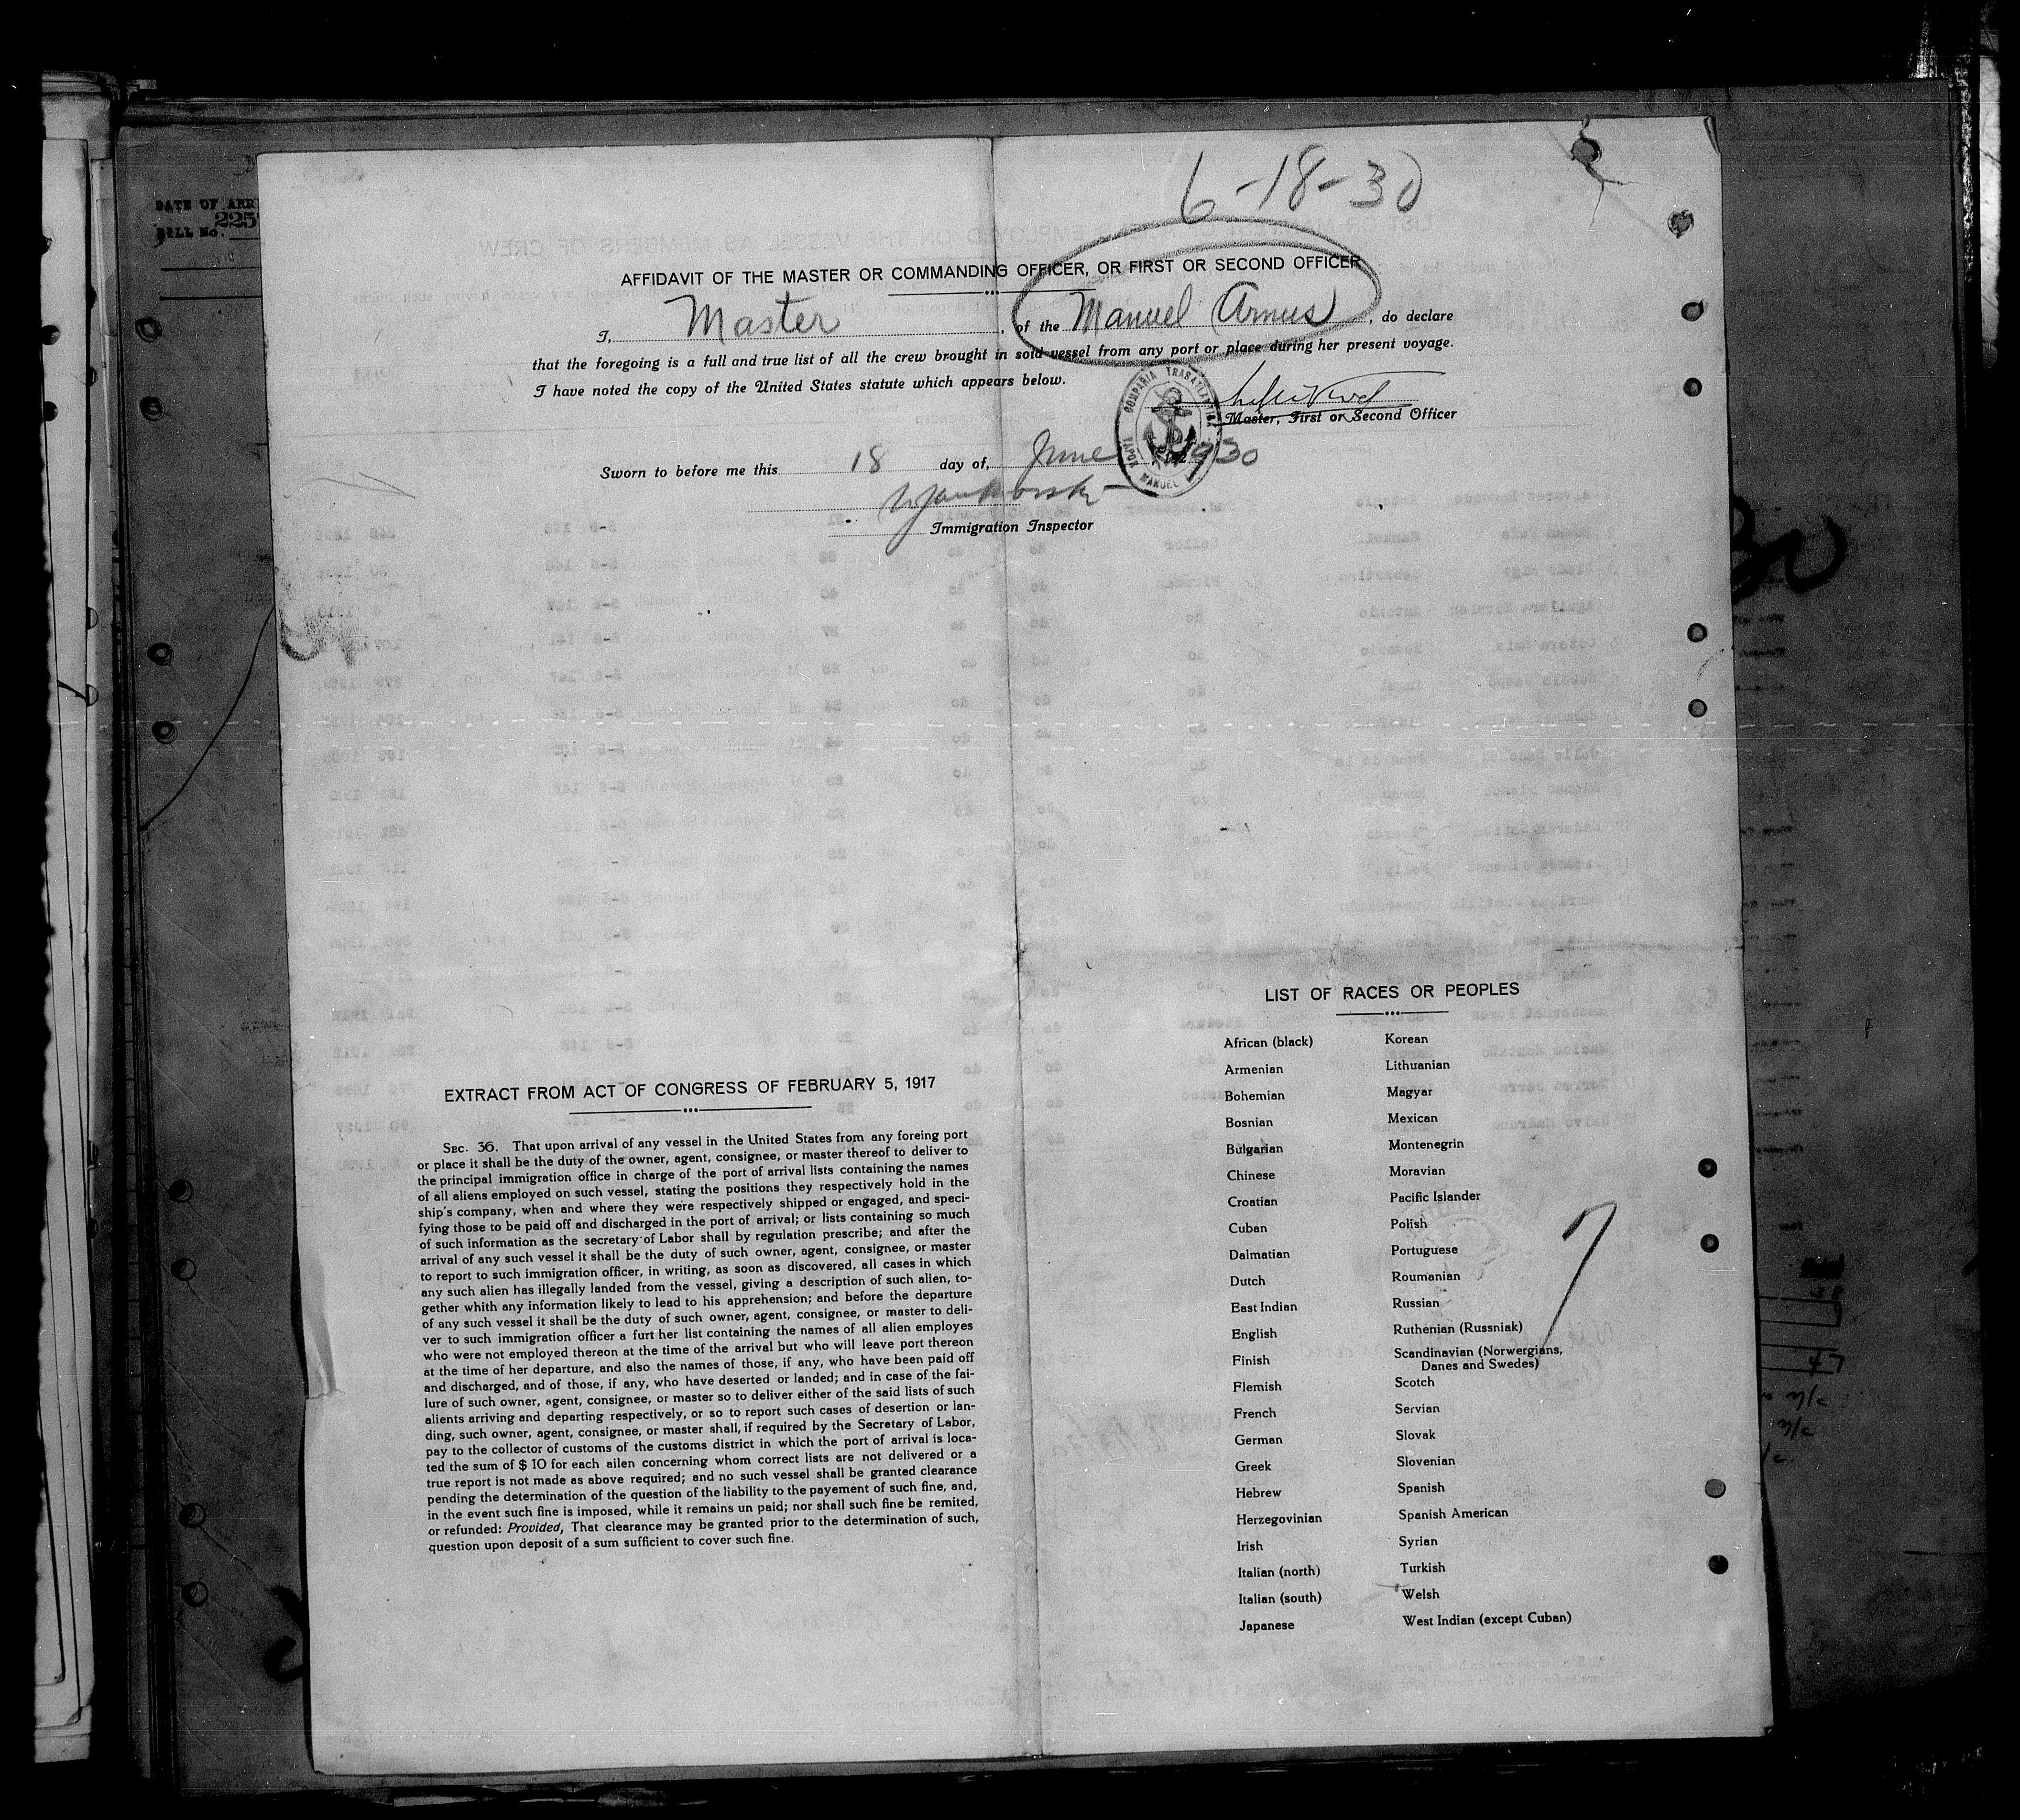 DATE OF ARR
BILL No. 225
6-18-30
AFFIDAVIT OF THE MASTER OR COMMANDING OFFICER, OR FIRST OR SECOND OFFICER
I, Master, of the Manuel Arnus, do declare
that the foregoing is a full and true list of all the crew brought in said vessel from any port or place during her present voyage.
I have noted the copy of the United States statute which appears below.
COMPAÑIA TRASATLANTICA
VAPOR MANUEL
Master, First or Second Officer
Sworn to before me this 18 day of, June 1930
Immigration Inspector
EXTRACT FROM ACT OF CONGRESS OF FEBRUARY 5, 1917
SEC. 36. That upon arrival of any vessel in the United States from any foreing port
or place it shall be the duty of the owner, agent, consignee, or master thereof to deliver to
the principal immigration office in charge of the port of arrival lists containing the names
of all aliens employed on such vessel, stating the positions they respectively hold in the
ship's company, when and where they were respectively shipped or engaged, and speci-
fying those to be paid off and discharged in the port of arrival; or lists containing so much
of such information as the secretary of Labor shall by regulation prescribe; and after the
arrival of any such vessel it shall be the duty of such owner, agent, consignee, or master
to report to such immigration officer, in writing, as soon as discovered, all cases in which
any such alien has illegally landed from the vessel, giving a description of such alien, to-
gether whith any information likely to lead to his apprehension; and before the departure
of any such vessel it shall be the duty of such owner, agent, consignee, or master to deli-
ver to such immigration officer a furt her list containing the names of all alien employes
who were not employed thereon at the time of the arrival but who will leave port thereon
at the time of her departure, and also the names of those, if any, who have been paid off
and discharged, and of those, if any, who have deserted or landed; and in case of the fai-
lure of such owner, agent, consignee, or master so to deliver either of the said lists of such
alients arriving and departing respectively, or so to report such cases of desertion or lan-
ding, such owner, agent, consignee, or master shall, if required by the Secretary of Labor,
pay to the collector of customs of the customs district in which the port of arrival is loca-
ted the sum of $ 10 for each ailen concerning whom correct lists are not delivered or a
true report is not made as above required; and no such vessel shall be granted clearance
pending the determination of the question of the liability to the payement of such fine, and,
in the event such fine is imposed, while it remains un paid; nor shall such fine be remited,
or refunded: Provided, That clearance may be granted prior to the determination of such,
question upon deposit of a sum sufficient to cover such fine.
LIST OF RACES OR PEOPLES
African (black)
Armenian
Bohemian
Bosnian
Bulgarian
Chinese
Croatian
Cuban
Dalmatian
Dutch
East Indian
English
Finish
Flemish
French
German
Greek
Hebrew
Herzegovinian
Irish
Italian (north)
Italian (south)
Japanese
Korean
Lithuanian
Magyar
Mexican
Montenegrin
Moravian
Pacific Islander
Polish
Portuguese
Roumanian
Russian
Ruthenian (Russniak)
Scandinavian (Norwergians,
Danes and Swedes)
Scotch
Servian
Slovak
Slovenian
Spanish
Spanish American
Syrian
Turkish
Welsh
West Indian (except Cuban)
7